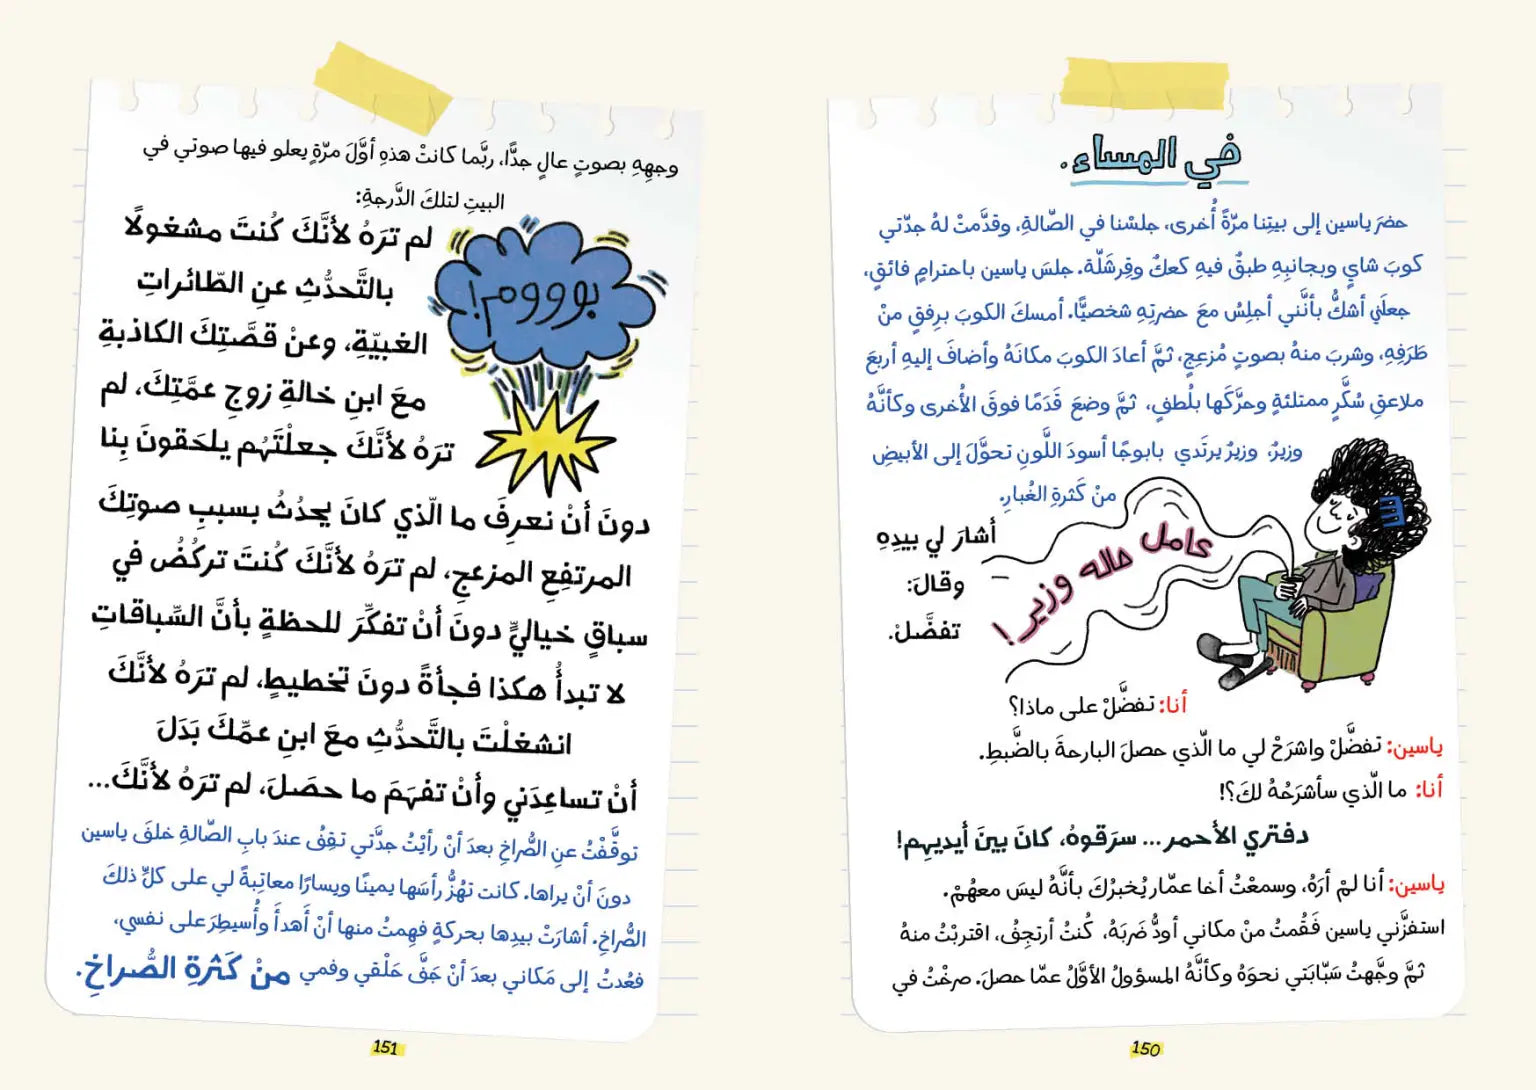 في المساء.
حضرَ ياسين إلى بيتِنا مرّةً أُخرى، جلسْنا في الصّالةِ، وقدَّمتْ لهُ جدّتي
كوبَ شايٍ وبجانبِهِ طبقٌ فيهِ كعكٌ وقِرشَلّة. جلسَ ياسين باحترامٍ فائقٍ،
جعلَني أشكُّ بأنَّني أجلِسُ معَ حضرتِهِ شخصيًّا. أمسكَ الكوبَ برِفقٍ منْ
طَرَفِهِ، وشربَ منهُ بصوتٍ مُزعِجٍ، ثمَّ أعادَ الكوبَ مكانَهُ وأضافَ إليهِ أربعَ
ملاعقِ سُكَّرٍ ممتلئةٍ وحرَّكَها بلُطفٍ، ثمَّ وضعَ قَدَمًا فوقَ الأُخرى وكأنَّهُ
وزيرٌ، وزيرٌ يرتَدي بابوجًا أسودَ اللَّونِ تحوَّلَ إلى الأبيضِ
منْ كَثرةِ الغُبارِ.
عامل حاله وزير!
أشارَ لي بيدِهِ
وقالَ:
تفضَّلْ.
أنا: تفضَّلْ على ماذا؟
ياسين: تفضَّلْ واشرَحْ لي ما الّذي حصلَ البارحةَ بالضَّبطِ.
أنا: ما الّذي سأشرَحُهُ لكَ؟!
دفتري الأحمر... سرَقوهُ، كانَ بينَ أيديهِم!
ياسين: أنا لمْ أرَهُ، وسمعْتُ أخا عمّار يُخبرُكَ بأنَّهُ ليسَ معهُمْ.
استفزَّني ياسين فَقُمتُ منْ مكاني أودُّ ضَربَهُ، كُنتُ أرتجِفُ، اقتربْتُ منهُ
ثمَّ وجَّهتُ سَبّابَتي نحوَهُ وكأنَّهُ المسؤولُ الأوَّلُ عمّا حصلَ. صرخْتُ في
150
وجهِهِ بصوتٍ عالٍ جدًّا، ربَّما كانتْ هذهِ أوَّلَ مرّةٍ يعلو فيها صوتي في
البيتِ لتلكَ الدَّرجةِ:
بوووم!
لم ترَهُ لأنَّكَ كُنتَ مشغولًا
بالتَّحدُّثِ عنِ الطّائراتِ
الغبيّةِ، وعنْ قصَّتِكَ الكاذبةِ
معَ ابنِ خالةِ زوجِ عمَّتِكَ، لم
ترَهُ لأنَّكَ جعلْتَهُم يلحَقونَ بِنا
دونَ أنْ نعرِفَ ما الّذي كانَ يحدُثُ بسببِ صوتِكَ
المرتفِعِ المزعجِ، لم ترَهُ لأنَّكَ كُنتَ تركُضُ في
سباقٍ خياليٍّ دونَ أنْ تفكِّرَ للحظةٍ بأنَّ السِّباقاتِ
لا تبدأُ هكذا فجأةً دونَ تخطيطٍ، لم ترَهُ لأنَّكَ
انشغلْتَ بالتَّحدُّثِ معَ ابنِ عمِّكَ بَدَلَ
أنْ تساعِدَني وأنْ تفهَمَ ما حصَلَ، لم ترَهُ لأنَّكَ...
توقَّفْتُ عنِ الصُّراخِ بعدَ أنْ رأيْتُ جدَّتي تقِفُ عندَ بابِ الصّالةِ خلفَ ياسين
دونَ أنْ يراها. كانت تهُزُّ رأسَها يمينًا ويسارًا معاتِبةً لي على كلِّ ذلكَ
الصُّراخِ. أشارَتْ بيدِها بحركةٍ فهِمتُ منها أنْ أهدأَ وأُسيطِرَ على نفسي،
فعُدتُ إلى مَكاني بعدَ أنْ جَفَّ حَلْقي وفمي منْ كَثرةِ الصُّراخِ.
151